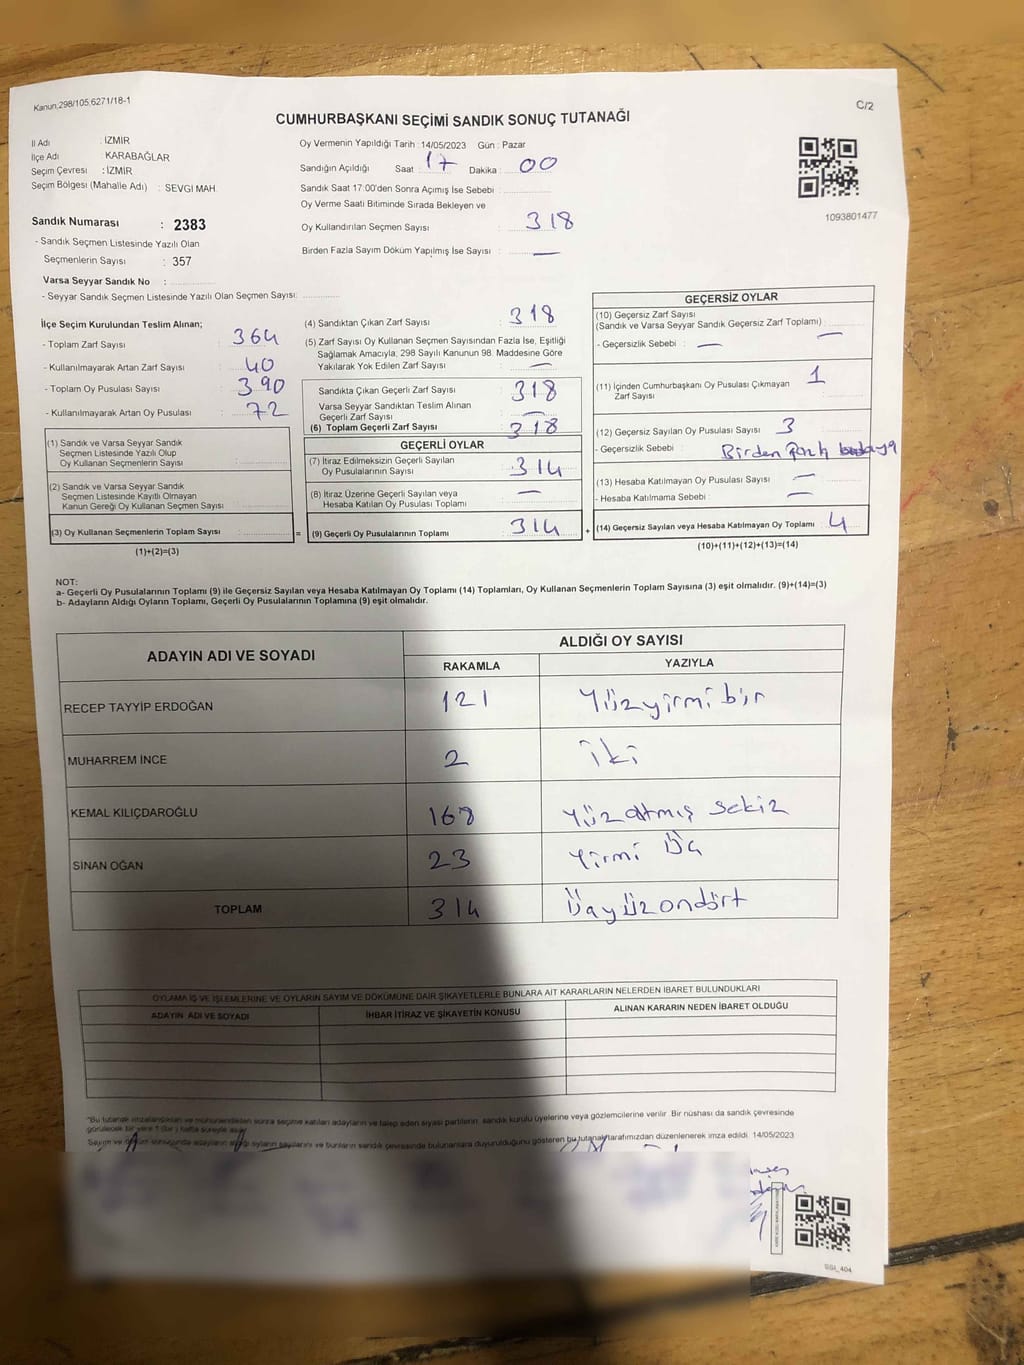 Kanun;298/105;6271/18-1
C/2
CUMHURBAŞKANI SEÇİMİ SANDIK SONUÇ TUTANAĞI
İl Adı : İZMİR
İlçe Adı : KARABAĞLAR
Seçim Çevresi : İZMİR
Seçim Bölgesi (Mahalle Adı) : SEVGİ MAH.
Sandık Numarası : 2383
- Sandık Seçmen Listesinde Yazılı Olan
Seçmenlerin Sayısı : 357
Varsa Seyyar Sandık No :
- Seyyar Sandık Seçmen Listesinde Yazılı Olan Seçmen Sayısı:
Oy Vermenin Yapıldığı Tarih : 14/05/2023 Gün : Pazar
Sandığın Açıldığı Saat : 17 Dakika : 00
Sandık Saat 17:00'den Sonra Açımış İse Sebebi :
Oy Verme Saati Bitiminde Sırada Bekleyen ve
Oy Kullandırılan Seçmen Sayısı : 318
Birden Fazla Sayım Döküm Yapılmış İse Sayısı : —
1093801477
İlçe Seçim Kurulundan Teslim Alınan;
- Toplam Zarf Sayısı : 364
- Kullanılmayarak Artan Zarf Sayısı : 40
- Toplam Oy Pusulası Sayısı : 390
- Kullanılmayarak Artan Oy Pusulası : 72
(1) Sandık ve Varsa Seyyar Sandık
Seçmen Listesinde Yazılı Olup
Oy Kullanan Seçmenlerin Sayısı :
(2) Sandık ve Varsa Seyyar Sandık
Seçmen Listesinde Kayıtlı Olmayan
Kanun Gereği Oy Kullanan Seçmen Sayısı :
(3) Oy Kullanan Seçmenlerin Toplam Sayısı : =
(1)+(2)=(3)
(4) Sandıktan Çıkan Zarf Sayısı : 318
(5) Zarf Sayısı Oy Kullanan Seçmen Sayısından Fazla İse, Eşitliği
Sağlamak Amacıyla; 298 Sayılı Kanunun 98. Maddesine Göre
Yakılarak Yok Edilen Zarf Sayısı : —
Sandıkta Çıkan Geçerli Zarf Sayısı : 318
Varsa Seyyar Sandıktan Teslim Alınan
Geçerli Zarf Sayısı : —
(6) Toplam Geçerli Zarf Sayısı : 318
GEÇERLİ OYLAR
(7) İtiraz Edilmeksizin Geçerli Sayılan
Oy Pusulalarının Sayısı : 314
(8) İtiraz Üzerine Geçerli Sayılan veya
Hesaba Katılan Oy Pusulası Toplamı : —
(9) Geçerli Oy Pusulalarının Toplamı : 314 +
GEÇERSİZ OYLAR
(10) Geçersiz Zarf Sayısı
(Sandık ve Varsa Seyyar Sandık Geçersiz Zarf Toplamı) : —
- Geçersizlik Sebebi : —
(11) İçinden Cumhurbaşkanı Oy Pusulası Çıkmayan
Zarf Sayısı : 1
(12) Geçersiz Sayılan Oy Pusulası Sayısı : 3
- Geçersizlik Sebebi : Birden
(13) Hesaba Katılmayan Oy Pusulası Sayısı : —
- Hesaba Katılmama Sebebi : —
(14) Geçersiz Sayılan veya Hesaba Katılmayan Oy Toplamı : 4
(10)+(11)+(12)+(13)=(14)
NOT:
a- Geçerli Oy Pusulalarının Toplamı (9) ile Geçersiz Sayılan veya Hesaba Katılmayan Oy Toplamı (14) Toplamları, Oy Kullanan Seçmenlerin Toplam Sayısına (3) eşit olmalıdır. (9)+(14)=(3)
b- Adayların Aldığı Oyların Toplamı, Geçerli Oy Pusulalarının Toplamına (9) eşit olmalıdır.
ADAYIN ADI VE SOYADI
ALDIĞI OY SAYISI
RAKAMLA YAZIYLA
RECEP TAYYİP ERDOĞAN 121 Yüzyirmi bir
MUHARREM İNCE 2 iki
KEMAL KILIÇDAROĞLU 168 Yüzatmış sekiz
SİNAN OĞAN 23 Yirmi Üç
TOPLAM 314 Üçyüzondört
OYLAMA İŞ VE İŞLEMLERİNE VE OYLARIN SAYIM VE DÖKÜMÜNE DAİR ŞİKAYETLERLE BUNLARA AİT KARARLARIN NELERDEN İBARET BULUNDUKLARI
ADAYIN ADI VE SOYADI İHBAR İTİRAZ VE ŞİKAYETİN KONUSU ALINAN KARARIN NEDEN İBARET OLDUĞU
"Bu tutanak imzalandıktan ve mühürlendikten sonra seçime katılan adayların ve talep eden siyasi partilerin sandık kurulu üyelerine veya gözlemcilerine verilir. Bir nüshası da sandık çevresinde
görülecek bir yere 1 (bir) hafta süreyle asılır
Sayım ve döküm sonucunda adayların aldığı oyların sayılarını ve bunların sandık çevresinde bulunanlara duyurulduğunu gösteren bu tutanak tarafımızdan düzenlenerek imza edildi. 14/05/2023
SSI_404